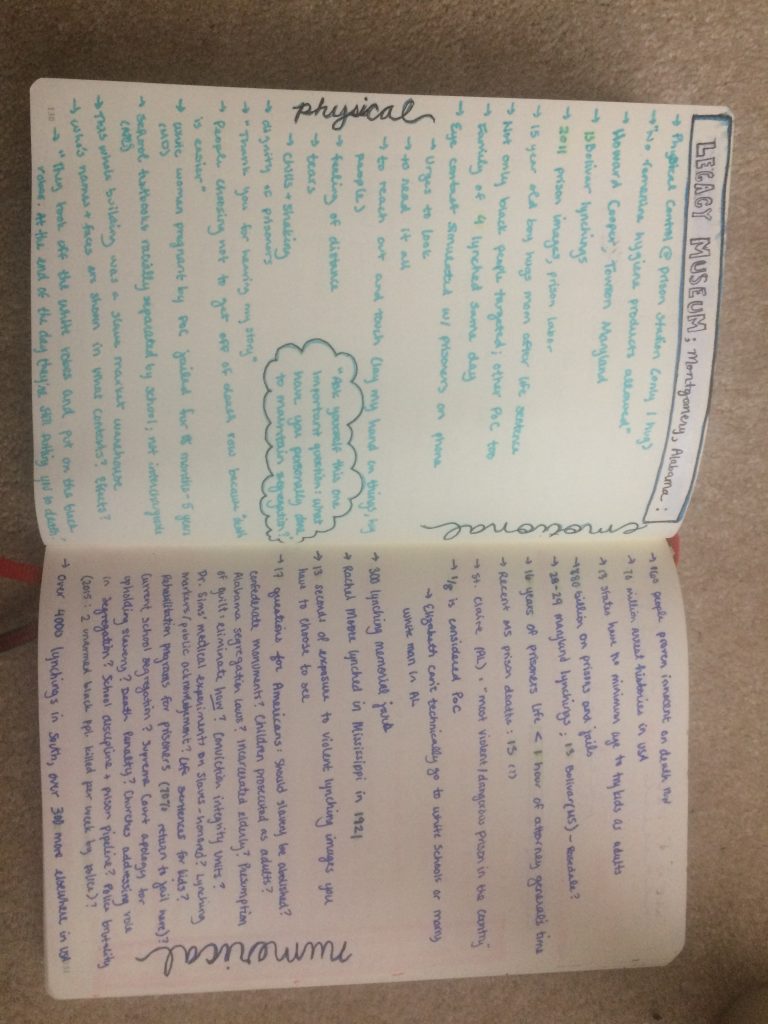 LEGACY MUSEUM; Montgomery, Alabama:
physical
emotional
→ Physical Control @ prison station (only 1 hug)
→ "No feminine hygiene products allowed"
→ Howard Cooper; Towson Maryland
→ 13 Bolivar lynchings
→ 2011 prison images, prison labor
→ 15 year old boy hugs mom after life sentence
→ Not only black people targeted; other PoC too
→ Family of 4 lynched same day
→ Eye contact simulated w/ prisoners on phone
→ Urges to look
→ to read it all
→ to reach out and touch (lay my hand on things, by
people)
→ feeling of distance
→ tears
→ chills + shaking
→ dignity of prisoners
→ "Thank you for hearing my story"
→ People choosing not to get off of death row because "death
is easier"
→ white women pregnant by PoC jailed for 8 months-5 years
→ School textbooks racially separated by school; not interchangeable
→ This whole building was a slave market warehouse
→ Who's names + faces are shown in what contexts? Effects?
→ "They took off the white robes and put on the black
robes. At the end of the day they're still putting you to death."
"Ask yourself this one
important question: what
have you personally done
to maintain segregation?"
130
numerical
→ 160 people proven innocent on death row
→ 70 million arrest histories in USA
→ 13 states have no minimum age to try kids as adults
→ $80 billion on prisons and jails
→ 28-29 Maryland lynchings; 13 Bolivar (MS) - Rosedale?
→ 16 years of prisoners life < 1 hour of attorney general's time
→ Recent MS prison deaths: 15 (?)
→ St. Claire (AL), "most violent/dangerous prison in the country"
→ 1/8 is considered PoC
→ Elizabeth can't technically go to white schools or marry
white man in AL
→ 300 lynching memorial jars
→ Rachel Moore lynched in Mississippi in 1921
→ 13 seconds of exposure to violent lynching images you
have to choose to see
→ 17 questions for Americans: Should slavery be abolished?
confederate monuments? Children prosecuted as adults?
Alabama segregation laws? Incarcerated elderly? Presumption
of guilt: eliminate how? Conviction integrity units?
Dr. Sims' medical experiments on slaves - honored? Lynching
markers/public acknowledgement? Life sentences for kids?
Rehabilitation programs for prisoners (70% return to jail here)?
Current school segregation? Supreme Court apology for
upholding slavery? Death Penalty? Churches addressing role
in segregation? School discipline + prison pipeline? Police brutality
(2015: 2 unarmed black ppl. killed per week by police)?
→ Over 4000 lynchings in South, over 300 more elsewhere in USA